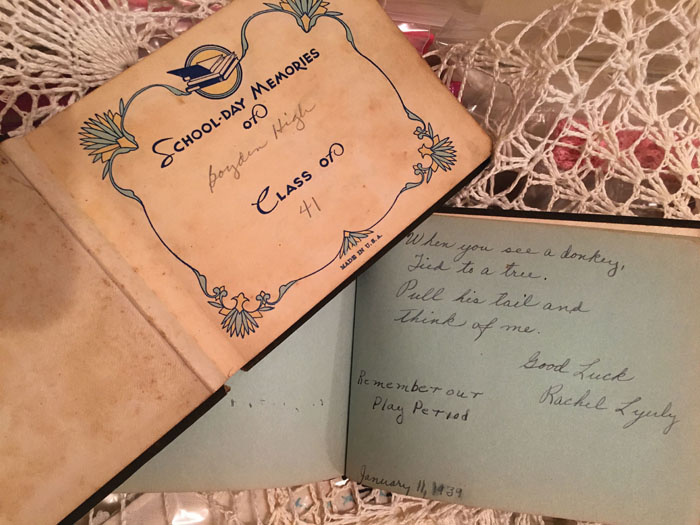 SCHOOL-DAY MEMORIES
OF
Boyden High
CLASS OF
41
MADE IN U.S.A.
When you see a donkey,
Tied to a tree.
Pull his tail and
think of me.
Good Luck
Rachel
Remember our
Play Period
January 11, 1939